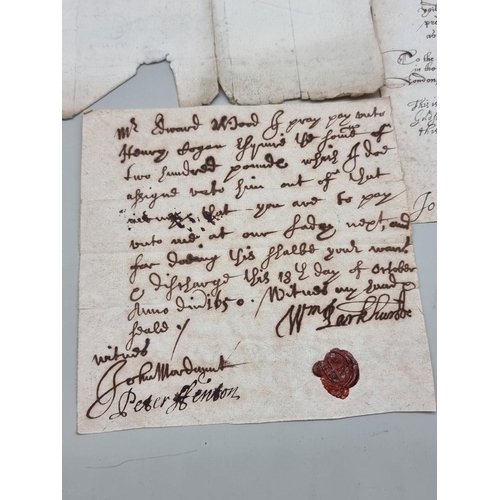 Mr Edward Wood I pray pay unto
Henry Hogan Thynne the some of
two hundred pounds which I doe
assigne unto him out of that
that you are to pay
unto me at our Lady next, and
for doeing this shalbe your warrt
& discharge this 19th day of October
Anno dni 1650 . Witnes my hand &
seale /
Wm Parkhurste
witnes
John Mordaunt
Peter Henton
To the
in the
London
This